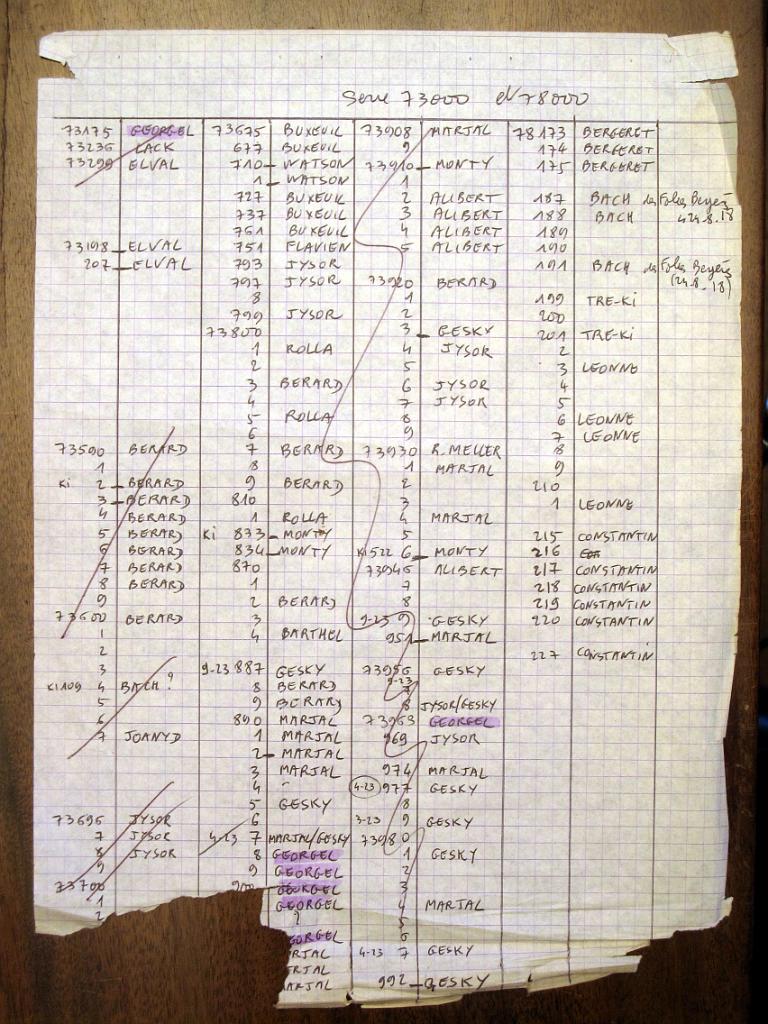 Serie 73000 et 78000
73175 GEORGEL
73236 LACK
73299 ELVAL
73198 ELVAL
207 ELVAL
73590 BERARD
1
Ki 2 BERARD
3 BERARD
4 BERARD
5 BERARD
6 BERARD
7 BERARD
8 BERARD
9
73600 BERARD
1
2
3
K1109 4 BACH ?
5
6
7 JOANYD
73696 JYSOR
7 JYSOR
8 JYSOR
9
73700
1
2
73675 BUXEUIL
677 BUXEUIL
710 WATSON
1 WATSON
727 BUXEUIL
737 BUXEUIL
761 BUXEUIL
751 FLAVIEN
793 JYSOR
797 JYSOR
8
799 JYSOR
73800
1 ROLLA
2
3 BERARD
4
5 ROLLA
6
7 BERARD
8
9 BERARD
810
1 ROLLA
Ki 833 MONTY
834 MONTY
870
1
2 BERARD
3
4 BARTHEL
9-23 887 GESKY
8 BERARD
9 BERARD
890 MARJAL
1 MARJAL
2 MARJAL
3 MARJAL
4
5 GESKY
6
4-23 7 MARJAL/GESKY
8 GEORGEL
9 GEORGEL
900 GEORGEL
GEORGEL
?
GEORGEL
RJAL
RJAL
ARJAL
73908 MARJAL
9
73910 MONTY
1
2 ALIBERT
3 ALIBERT
4 ALIBERT
5 ALIBERT
73920 BERARD
1
2
3 GESKY
4 JYSOR
5
6 JYSOR
7 JYSOR
8
9
73930 R. MELLER
1 MARJAL
2
3
4 MARJAL
5
K1522 6 MONTY
73946 ALIBERT
7
8
9-23 9 GESKY
951 MARJAL
73956 GESKY
9-23 7
8 JYSOR/GESKY
73963 GEORGEL
969 JYSOR
974 MARJAL
4-23 977 GESKY
8
3-23 9 GESKY
73980
1 GESKY
2
3
4 MARJAL
5
6
4-23 7 GESKY
992 GESKY
78173 BERGERET
174 BERGERET
175 BERGERET
187 BACH des Folies Bergère
188 BACH 24.8.18
189
190
191 BACH des Folies Bergère
(24.8.18)
199 TRE-KI
200
201 TRE-KI
2
3 LEONNE
4
5
6 LEONNE
7 LEONNE
8
9
210
1 LEONNE
215 CONSTANTIN
216
217 CONSTANTIN
218 CONSTANTIN
219 CONSTANTIN
220 CONSTANTIN
227 CONSTANTIN